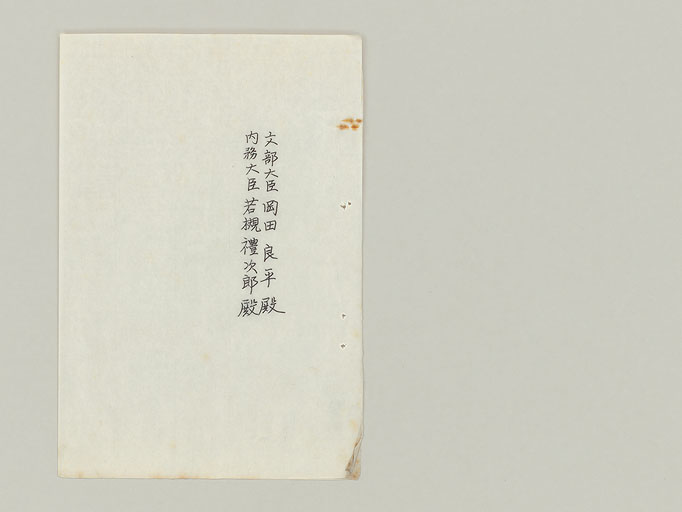 文部大臣 岡田良平殿
内務大臣 若槻禮次郎殿